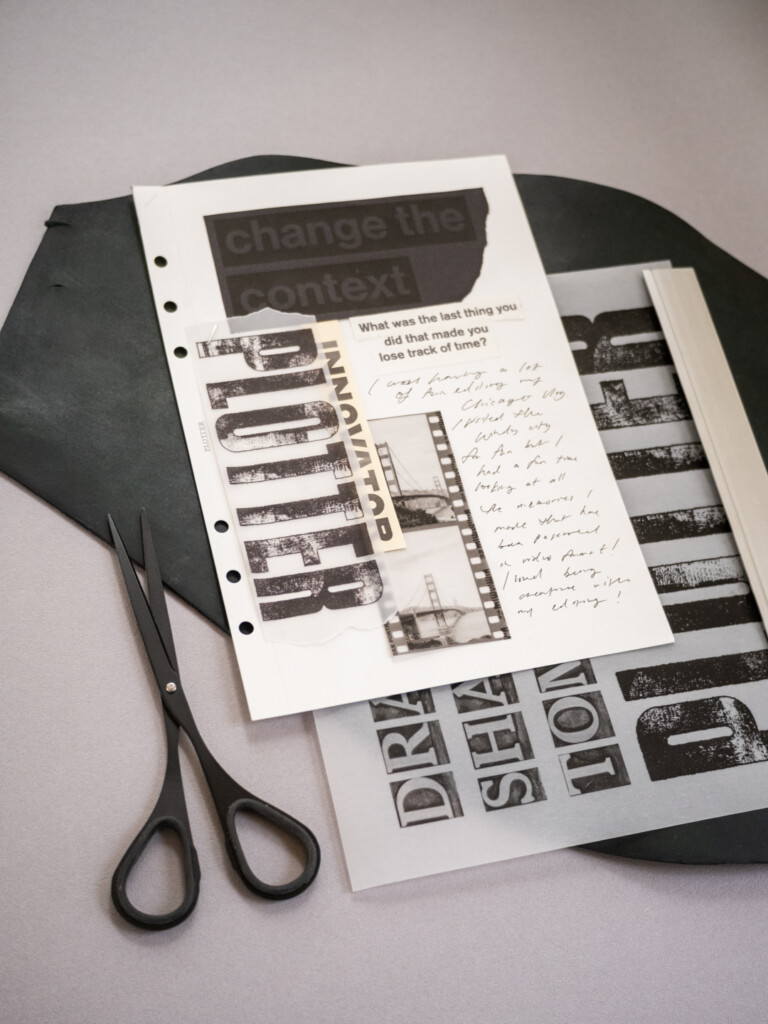 change the
context
What was the last thing you
did that made you
lose track of time?
PLOTTER
INNOVATOR
PLOTTER
I was having a lot
of fun editing my
Chicago vlog
I visited the
windy city
for fun but I
had a fun time
looking at all
the memories I
made that has
been
in video format!
I loved being
creative with
my editing!
PLOTTER
DRA
SHA
TON